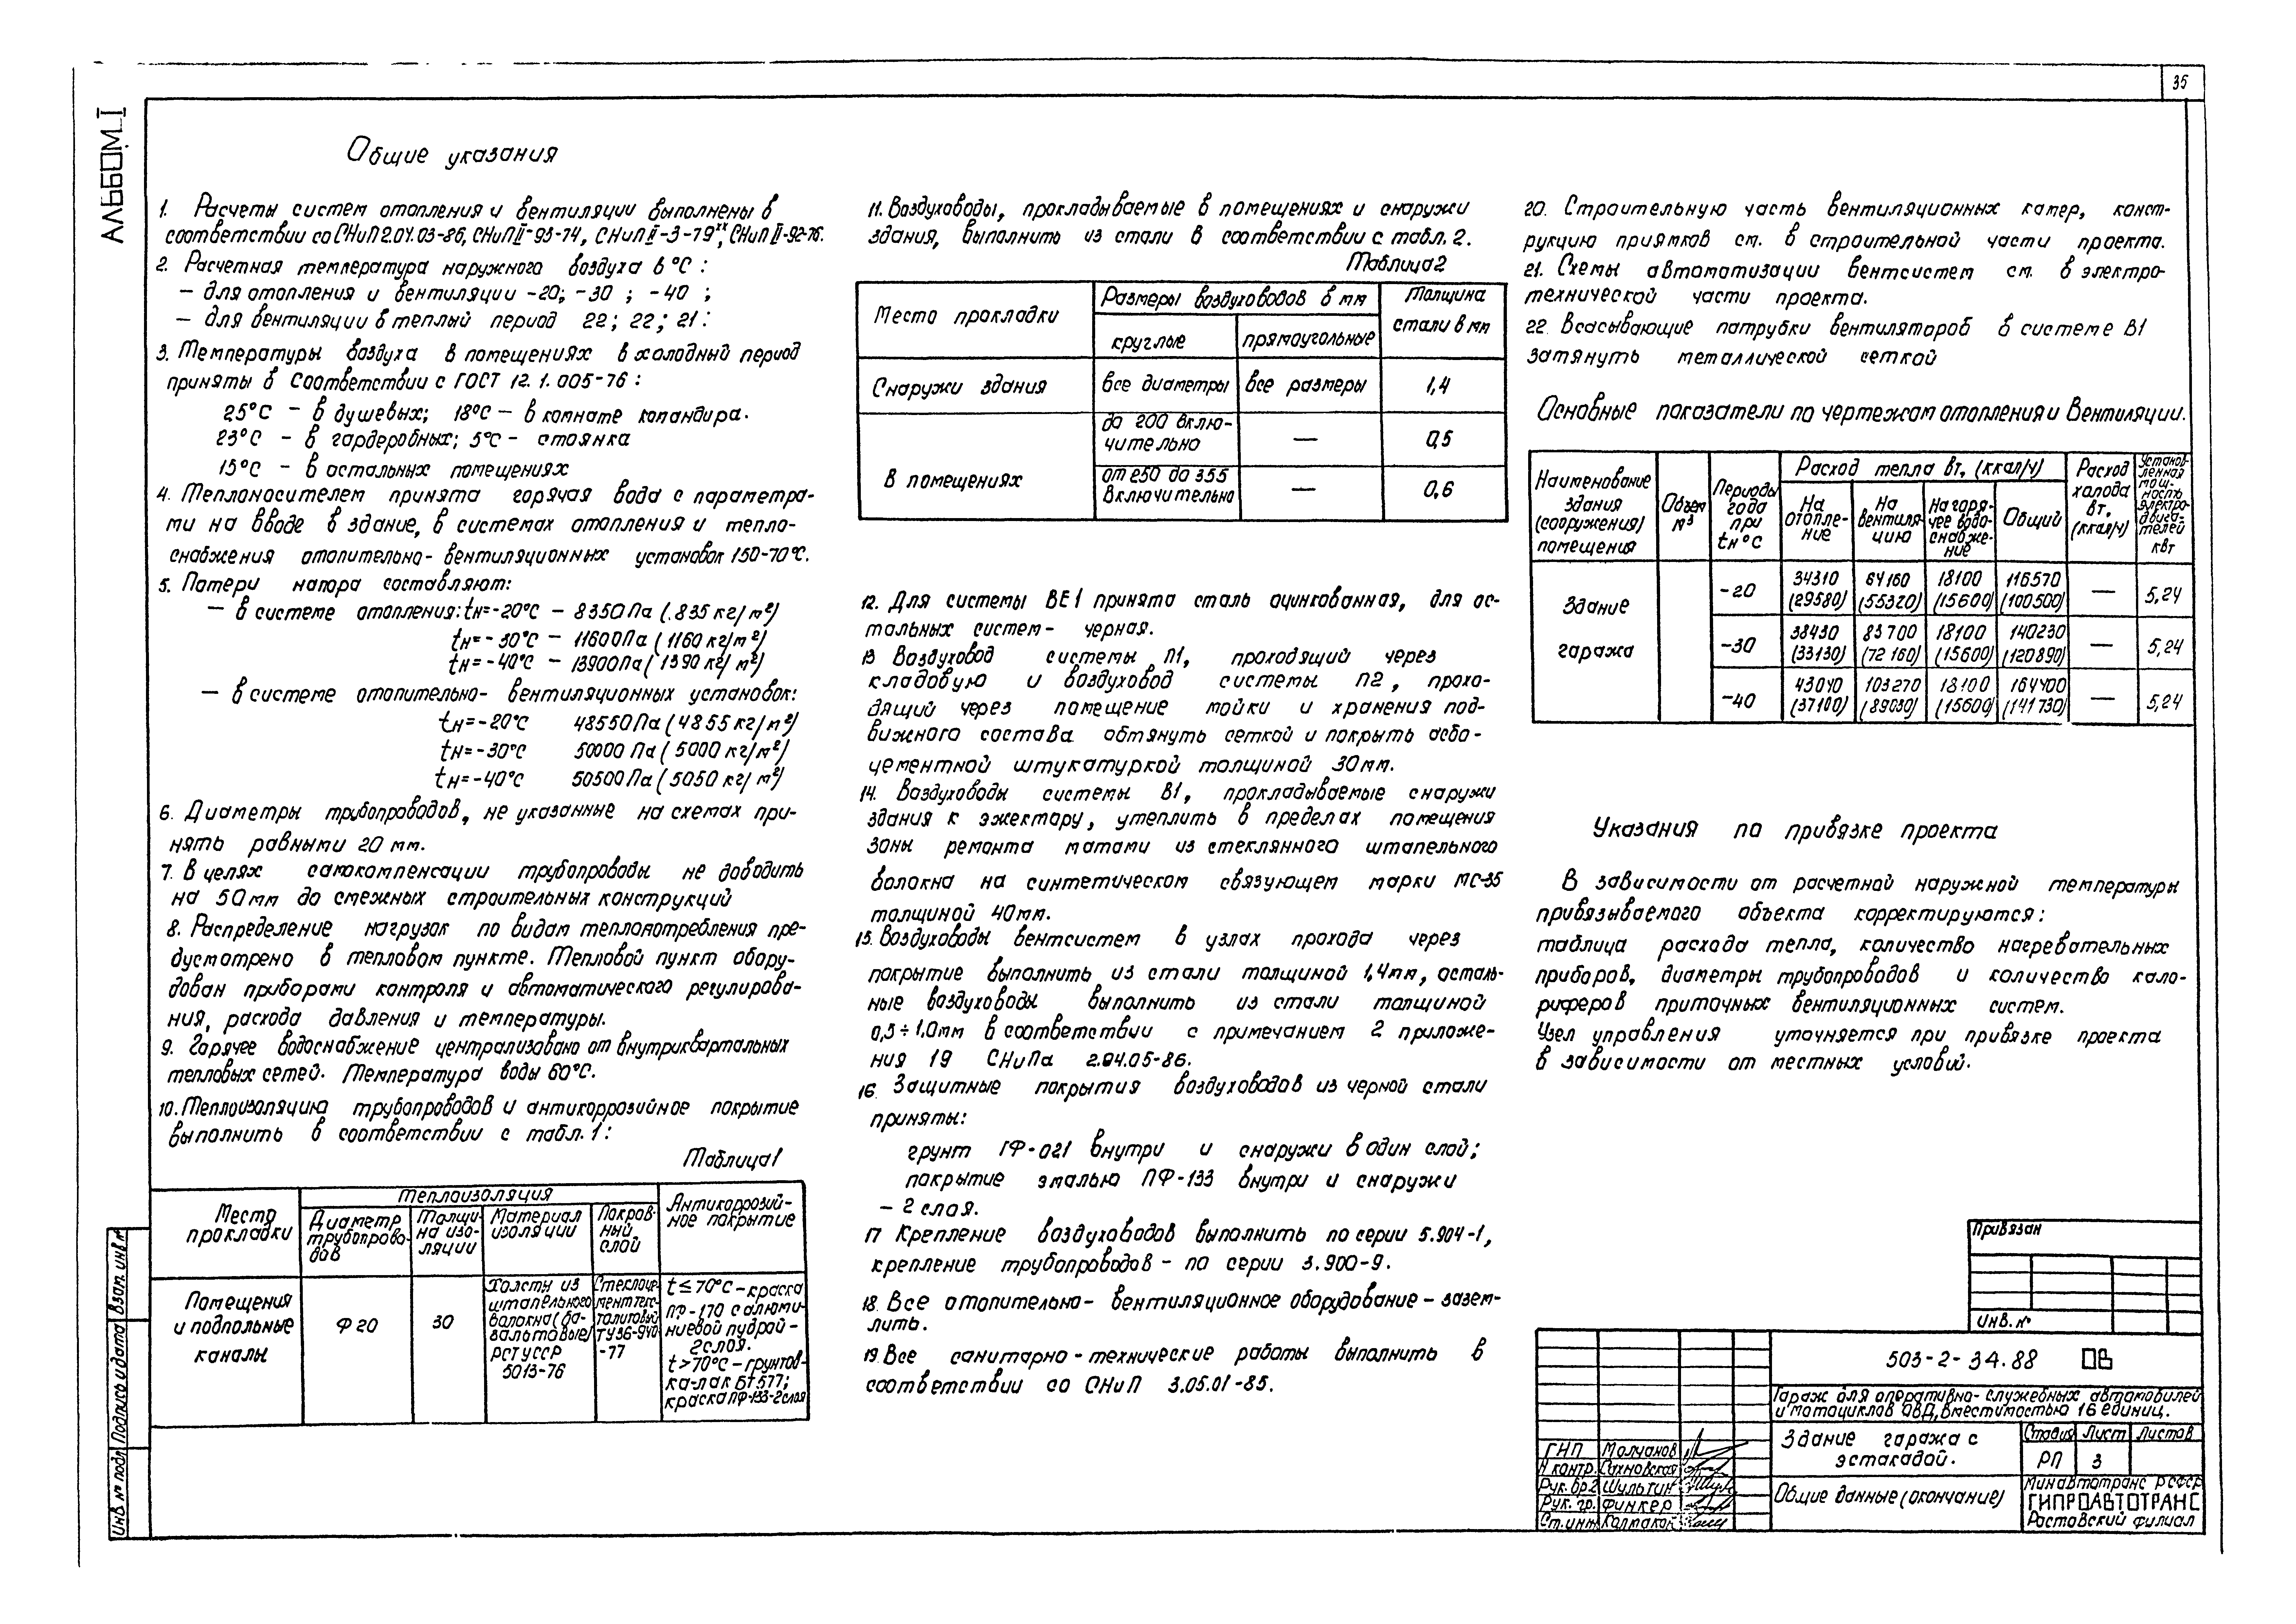 35
АЛЬБОМ I
Общие указания
1. Расчеты систем отопления и вентиляции выполнены в
соответствии со СНиП 2.04.03-86, СНиП II-93-74, СНиП II-3-79ˣˣ, СНиП II-92-76.
2. Расчетная температура наружного воздуха в °С :
— для отопления и вентиляции -20; -30 ; -40 ;
— для вентиляции в теплый период 22; 22; 21:
3. Температуры воздуха в помещениях в холодный период
приняты в соответствии с ГОСТ 12.1.005-76 :
25°С — в душевых; 18°С — в комнате командира.
23°С — в гардеробных; 5°С — стоянка
15°С — в остальных помещениях
4. Теплоносителем принята горячая вода с параметра-
ми на вводе в здание, в системах отопления и тепло-
снабжения отопительно-вентиляционных установок 150-70°С.
5. Потери напора составляют:
— в системе отопления: tн=-20°С — 8350Па (835 кг/м²)
tн=-30°С — 11600Па (1160 кг/м²)
tн=-40°С — 13900Па (1390 кг/м²)
— в системе отопительно-вентиляционных установок:
tн=-20°С 48550Па (4855 кг/м²)
tн=-30°С 50000 Па (5000 кг/м²)
tн=-40°С 50500Па (5050 кг/м²)
6. Диаметры трубопроводов, не указанные на схемах при-
нять равными 20 мм.
7. В целях самокомпенсации трубопроводы не доводить
на 50мм до смежных строительных конструкций
8. Распределение нагрузок по видам теплопотребления пре-
дусмотрено в тепловом пункте. Тепловой пункт обору-
дован приборами контроля и автоматического регулирова-
ния, расхода давления и температуры.
9. Горячее водоснабжение централизовано от внутриквартальных
тепловых сетей. Температура воды 60°С.
10. Теплоизоляцию трубопроводов и антикоррозийное покрытие
выполнить в соответствии с табл. 1:
Таблица 1
Место прокладки
Теплоизоляция
Диаметр трубопрово-дов
Толщи-на изо-ляции
Материал изоляции
Покров-ный слой
Антикоррозий-ное покрытие
Помещения и подпольные каналы
Ф 20
30
Холсты из штапельного волокна (ба-зальтовые) РСТ УССР 5013-76
Стеклоце-мент текс-толитовый ТУ36-940-77
t ≤ 70°С — краска ПФ-170 с алюми-ниевой пудрой — 2 слоя.
t > 70°С — грунтов-ка-лак БТ577; краска ПФ-133-2слоя
11. Воздуховоды, прокладываемые в помещениях и снаружи
здания, выполнить из стали в соответствии с табл. 2.
Таблица 2
Место прокладки
Размеры воздуховодов в мм
Толщина стали в мм
круглые
прямоугольные
Снаружи здания
все диаметры
все размеры
1,4
В помещениях
до 200 вклю-чительно
—
0,5
от 250 до 355 включительно
—
0,6
12. Для системы ВЕ1 принята сталь оцинкованная, для ос-
тальных систем — черная.
13 Воздуховод системы П1, проходящий через
кладовую и воздуховод системы П2, прохо-
дящий через помещение мойки и хранения под-
вижного состава обтянуть сеткой и покрыть асбо-
цементной штукатуркой толщиной 30мм.
14. Воздуховоды системы В1, прокладываемые снаружи
здания к эжектору, утеплить в пределах помещения
зоны ремонта матами из стеклянного штапельного
волокна на синтетическом связующем марки МС-35
толщиной 40мм.
15. Воздуховоды вентсистем в узлах прохода через
покрытие выполнить из стали толщиной 1,4мм, осталь-
ные воздуховоды выполнить из стали толщиной
0,5÷1.0мм в соответствии с примечанием 2 приложе-
ния 19 СНиПа 2.04.05-86.
16. Защитные покрытия воздуховодов из черной стали
приняты:
грунт ГФ-021 внутри и снаружи в один слой;
покрытие эмалью ПФ-133 внутри и снаружи
— 2 слоя.
17 Крепление воздуховодов выполнить по серии 5.904-1,
крепление трубопроводов — по серии 3.900-9.
18. Все отопительно-вентиляционное оборудование — зазем-
лить.
19. Все санитарно-технические работы выполнить в
соответствии со СНиП 3.05.01-85.
20. Строительную часть вентиляционных камер, конст-
рукцию приямков см. в строительной части проекта.
21. Схемы автоматизации вентсистем см. в электро-
технической части проекта.
22. Всасывающие патрубки вентиляторов в системе В1
затянуть металлической сеткой
Основные показатели по чертежам отопления и вентиляции.
Наименование здания (сооружения) помещения
Объем м³
Периоды года при tн°С
Расход тепла вт, (ккал/ч)
На отопле-ние
На вентиля-цию
На горя-чее водо-снабже-ние
Общий
Расход холода вт, (ккал/ч)
Установ-ленная мощ-ность электро-двига-телей квт
Здание гаража
-20 34310 (29580) 64160 (55320) 18100 (15600) 116570 (100500) — 5,24
-30 38430 (33130) 83700 (72160) 18100 (15600) 140230 (120890) — 5,24
-40 43040 (37100) 103270 (89030) 18100 (15600) 164400 (141730) — 5,24
Указания по привязке проекта
В зависимости от расчетной наружной температуры
привязываемого объекта корректируются:
таблица расхода тепла, количество нагревательных
приборов, диаметры трубопроводов и количество кало-
риферов приточных вентиляционных систем.
Узел управления уточняется при привязке проекта
в зависимости от местных условий.
Привязан
Инв. №
503-2-34.88 ОВ
Гараж для оперативно-служебных автомобилей
и мотоциклов ОВД, вместимостью 16 единиц.
Здание гаража с эстакадой.
Стадия Лист Листов
РП 3
Общие данные (окончание)
Минавтотранс РСФСР
ГИПРОАВТОТРАНС
Ростовский филиал
ГИП Молчанов
Н контр. Сахновская
Рук. бр.2 Шульгин
Рук. гр. Финкер
Ст. инж
Инв № подл Подпись и дата Взам. инв №